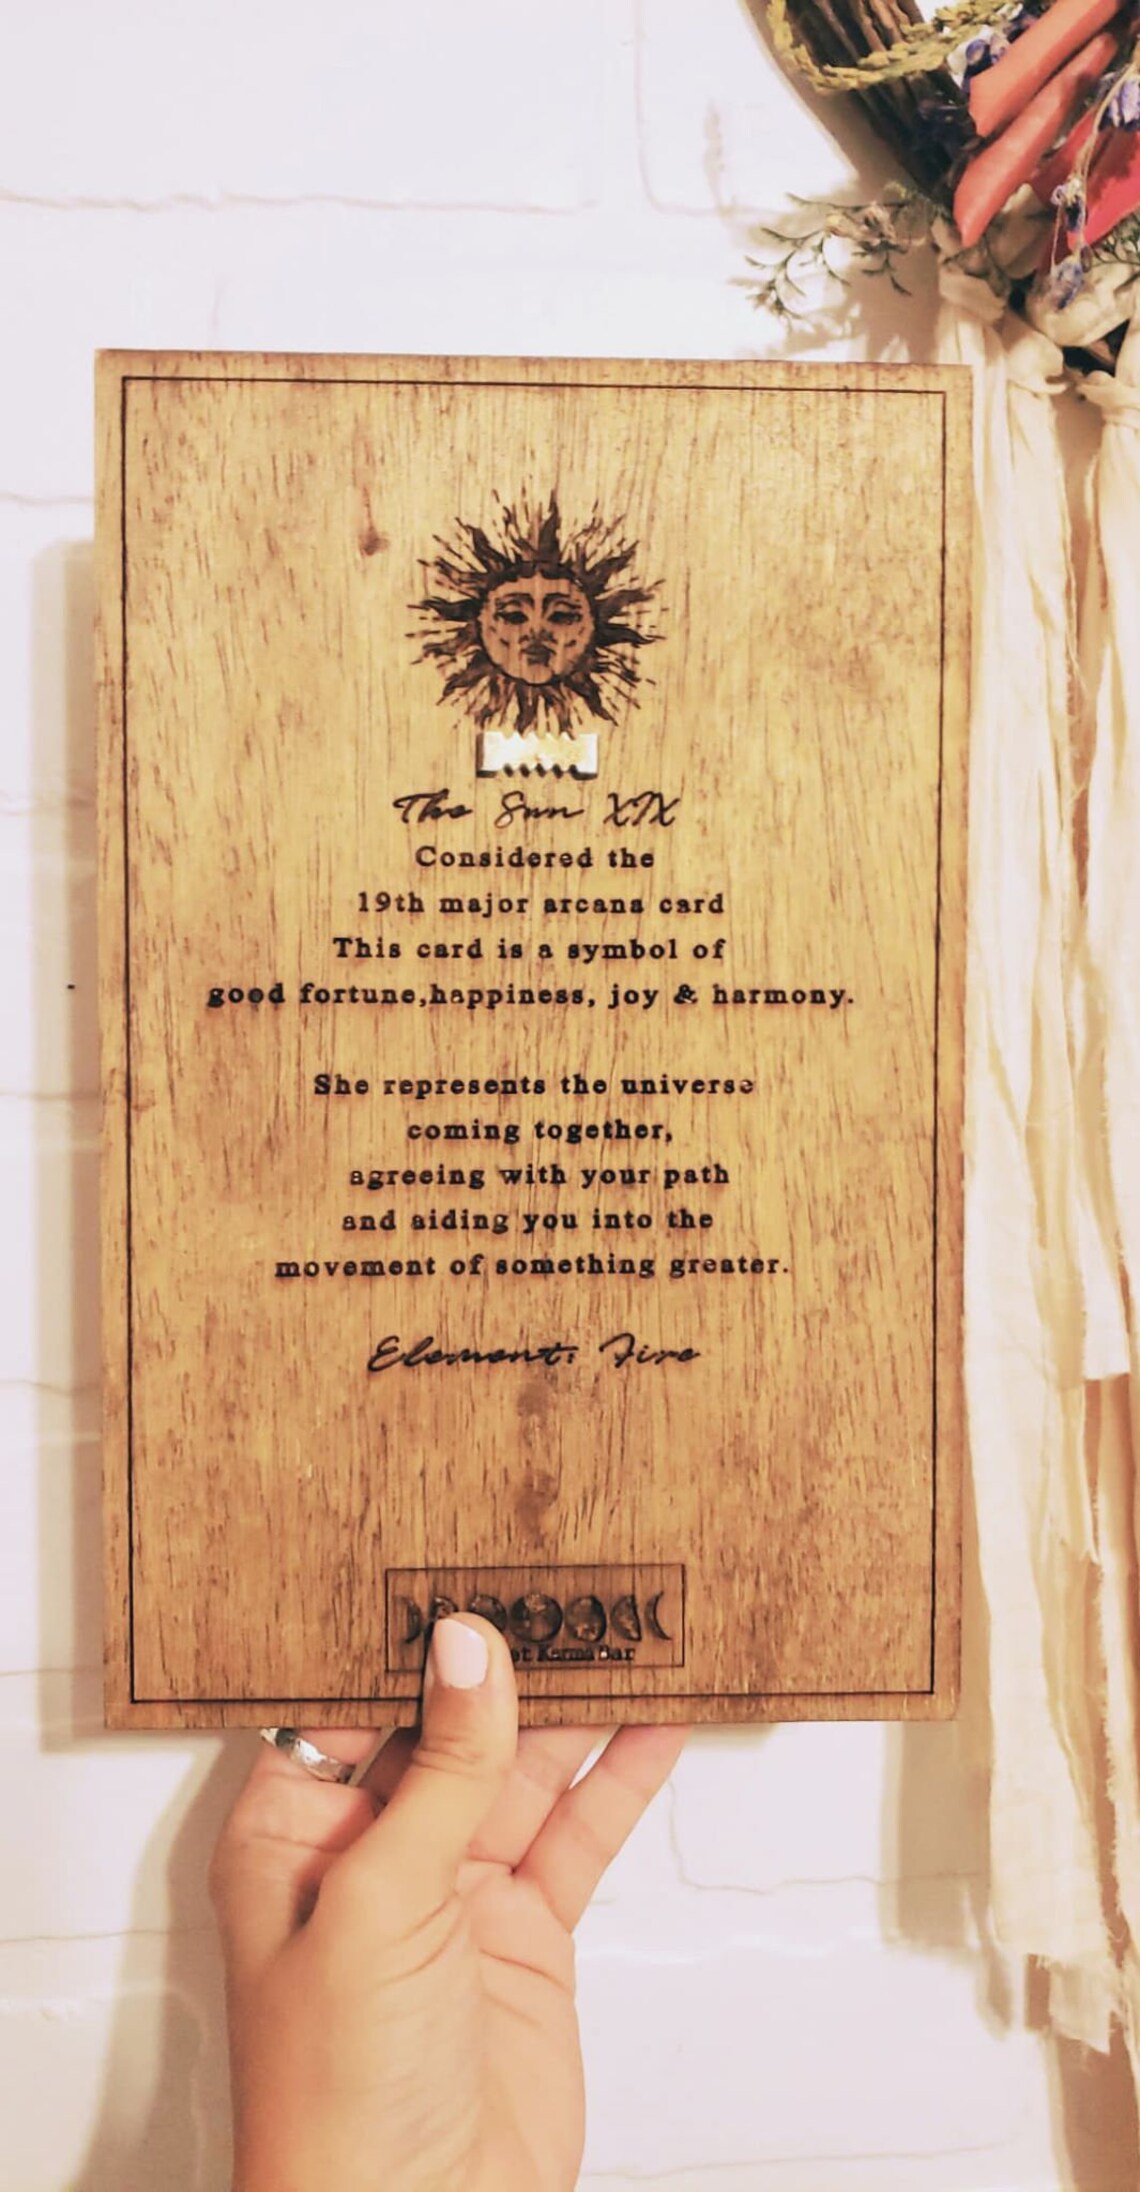 The Sun XIX
Considered the
19th major arcana card
This card is a symbol of
good fortune,happiness, joy & harmony.
She represents the universe
coming together,
agreeing with your path
and aiding you into the
movement of something greater.
Element: Fire
Karma Bar